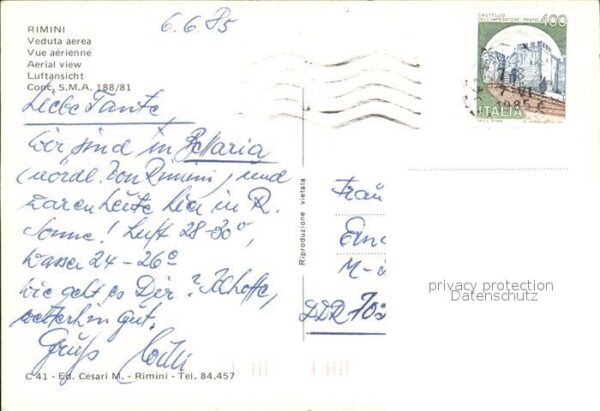 6.6.85
RIMINI
Veduta aerea
Vue aérienne
Aerial view
Luftansicht
Conc. S.M.A. 188/81
Liebe Tante,
wir sind in Bellaria
(nördl. von Rimini) und
waren heute hier in R.
Sonne! Luft 28-30°,
Wasser 24-26°
Wie geht es Dir? Ich hoffe,
weiterhin gut.
Gruß
C 41 - Ed. Cesari M. - Rimini - Tel. 84.457
Riproduzione vietata
CASTELLO
DELL'IMPERATORE - PRATO
400
7-VI
1985
ITALIA
Frau
M-
DDR 70
privacy protection
Datenschutz